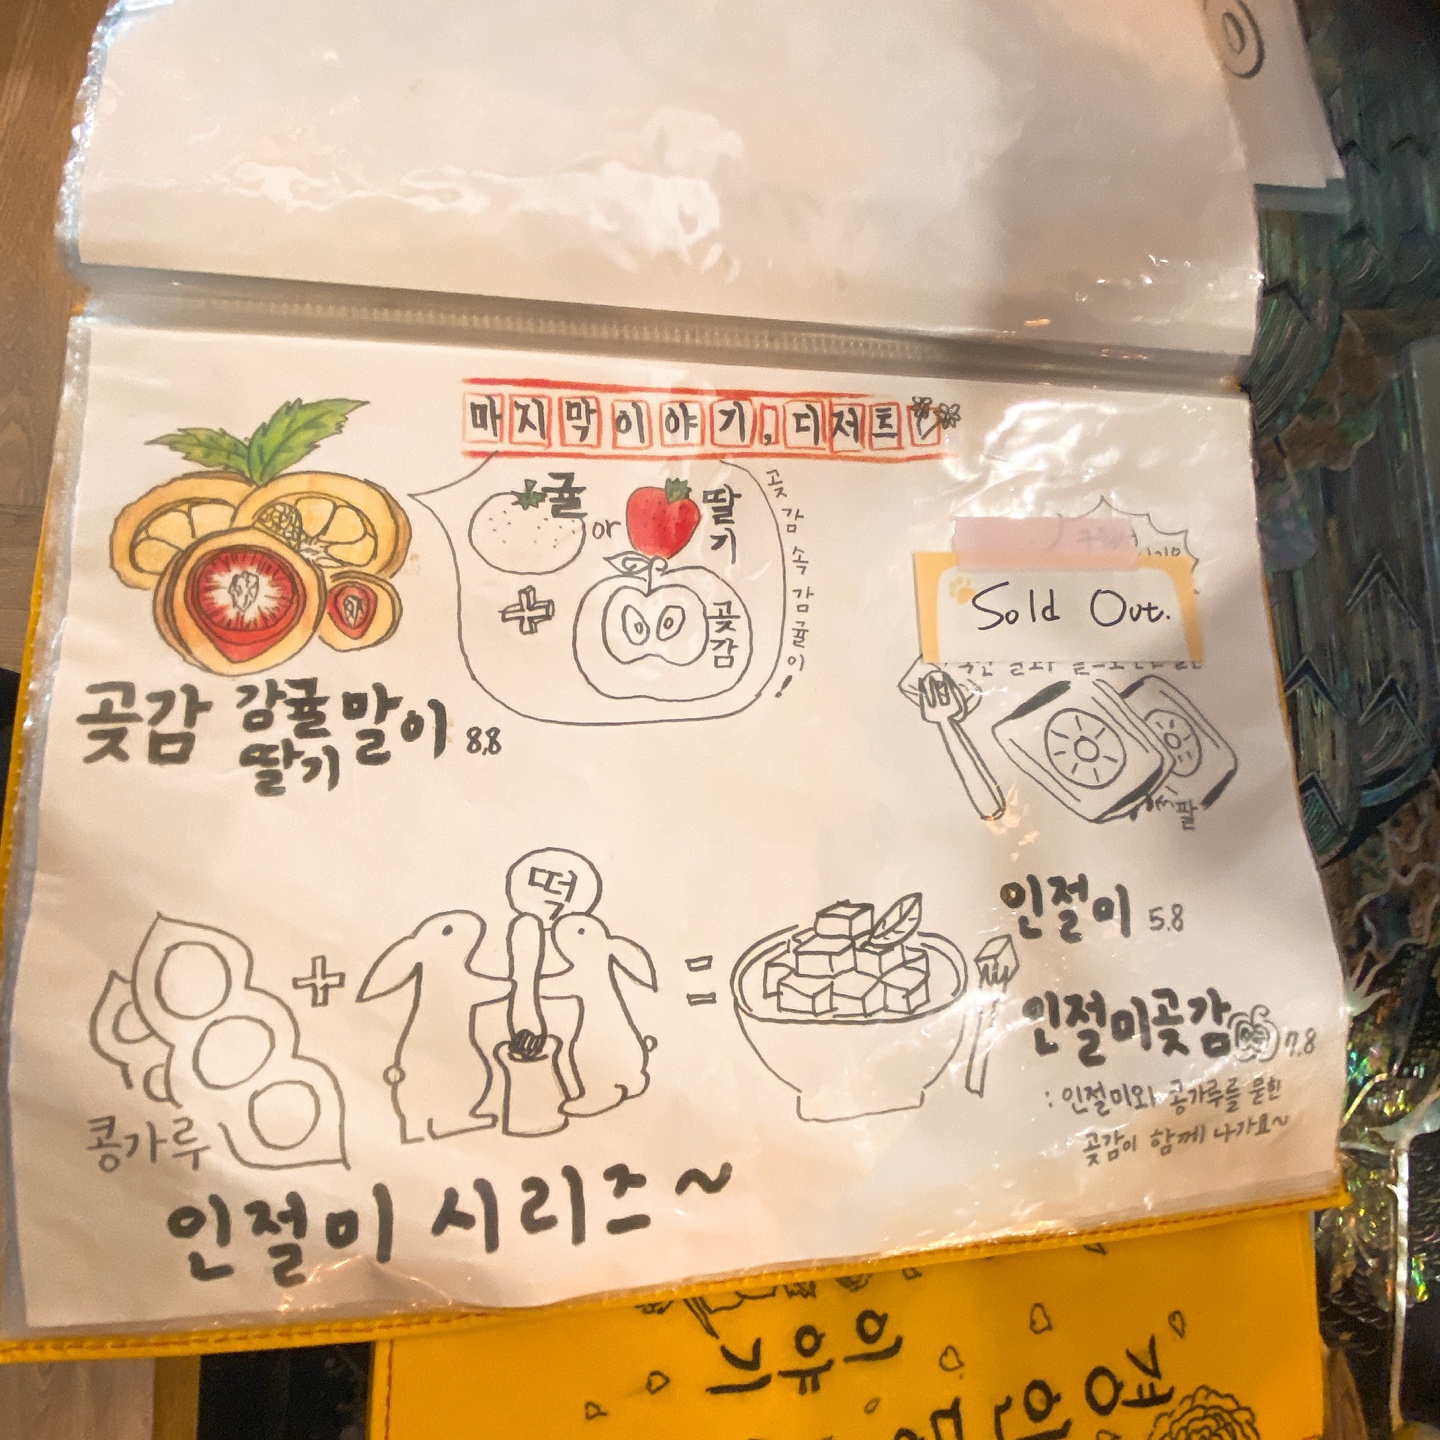 마지막이야기, 디저트
귤
or
딸기
곶감
곶감 속 감귤이!
곶감 감귤 말이 8.8
딸기
Sold Out.
팥
떡
콩가루
인절미 시리즈~
인절미 5.8
인절미곶감 7.8
: 인절미와 콩가루를 묻힌
곶감이 함께 나가요~